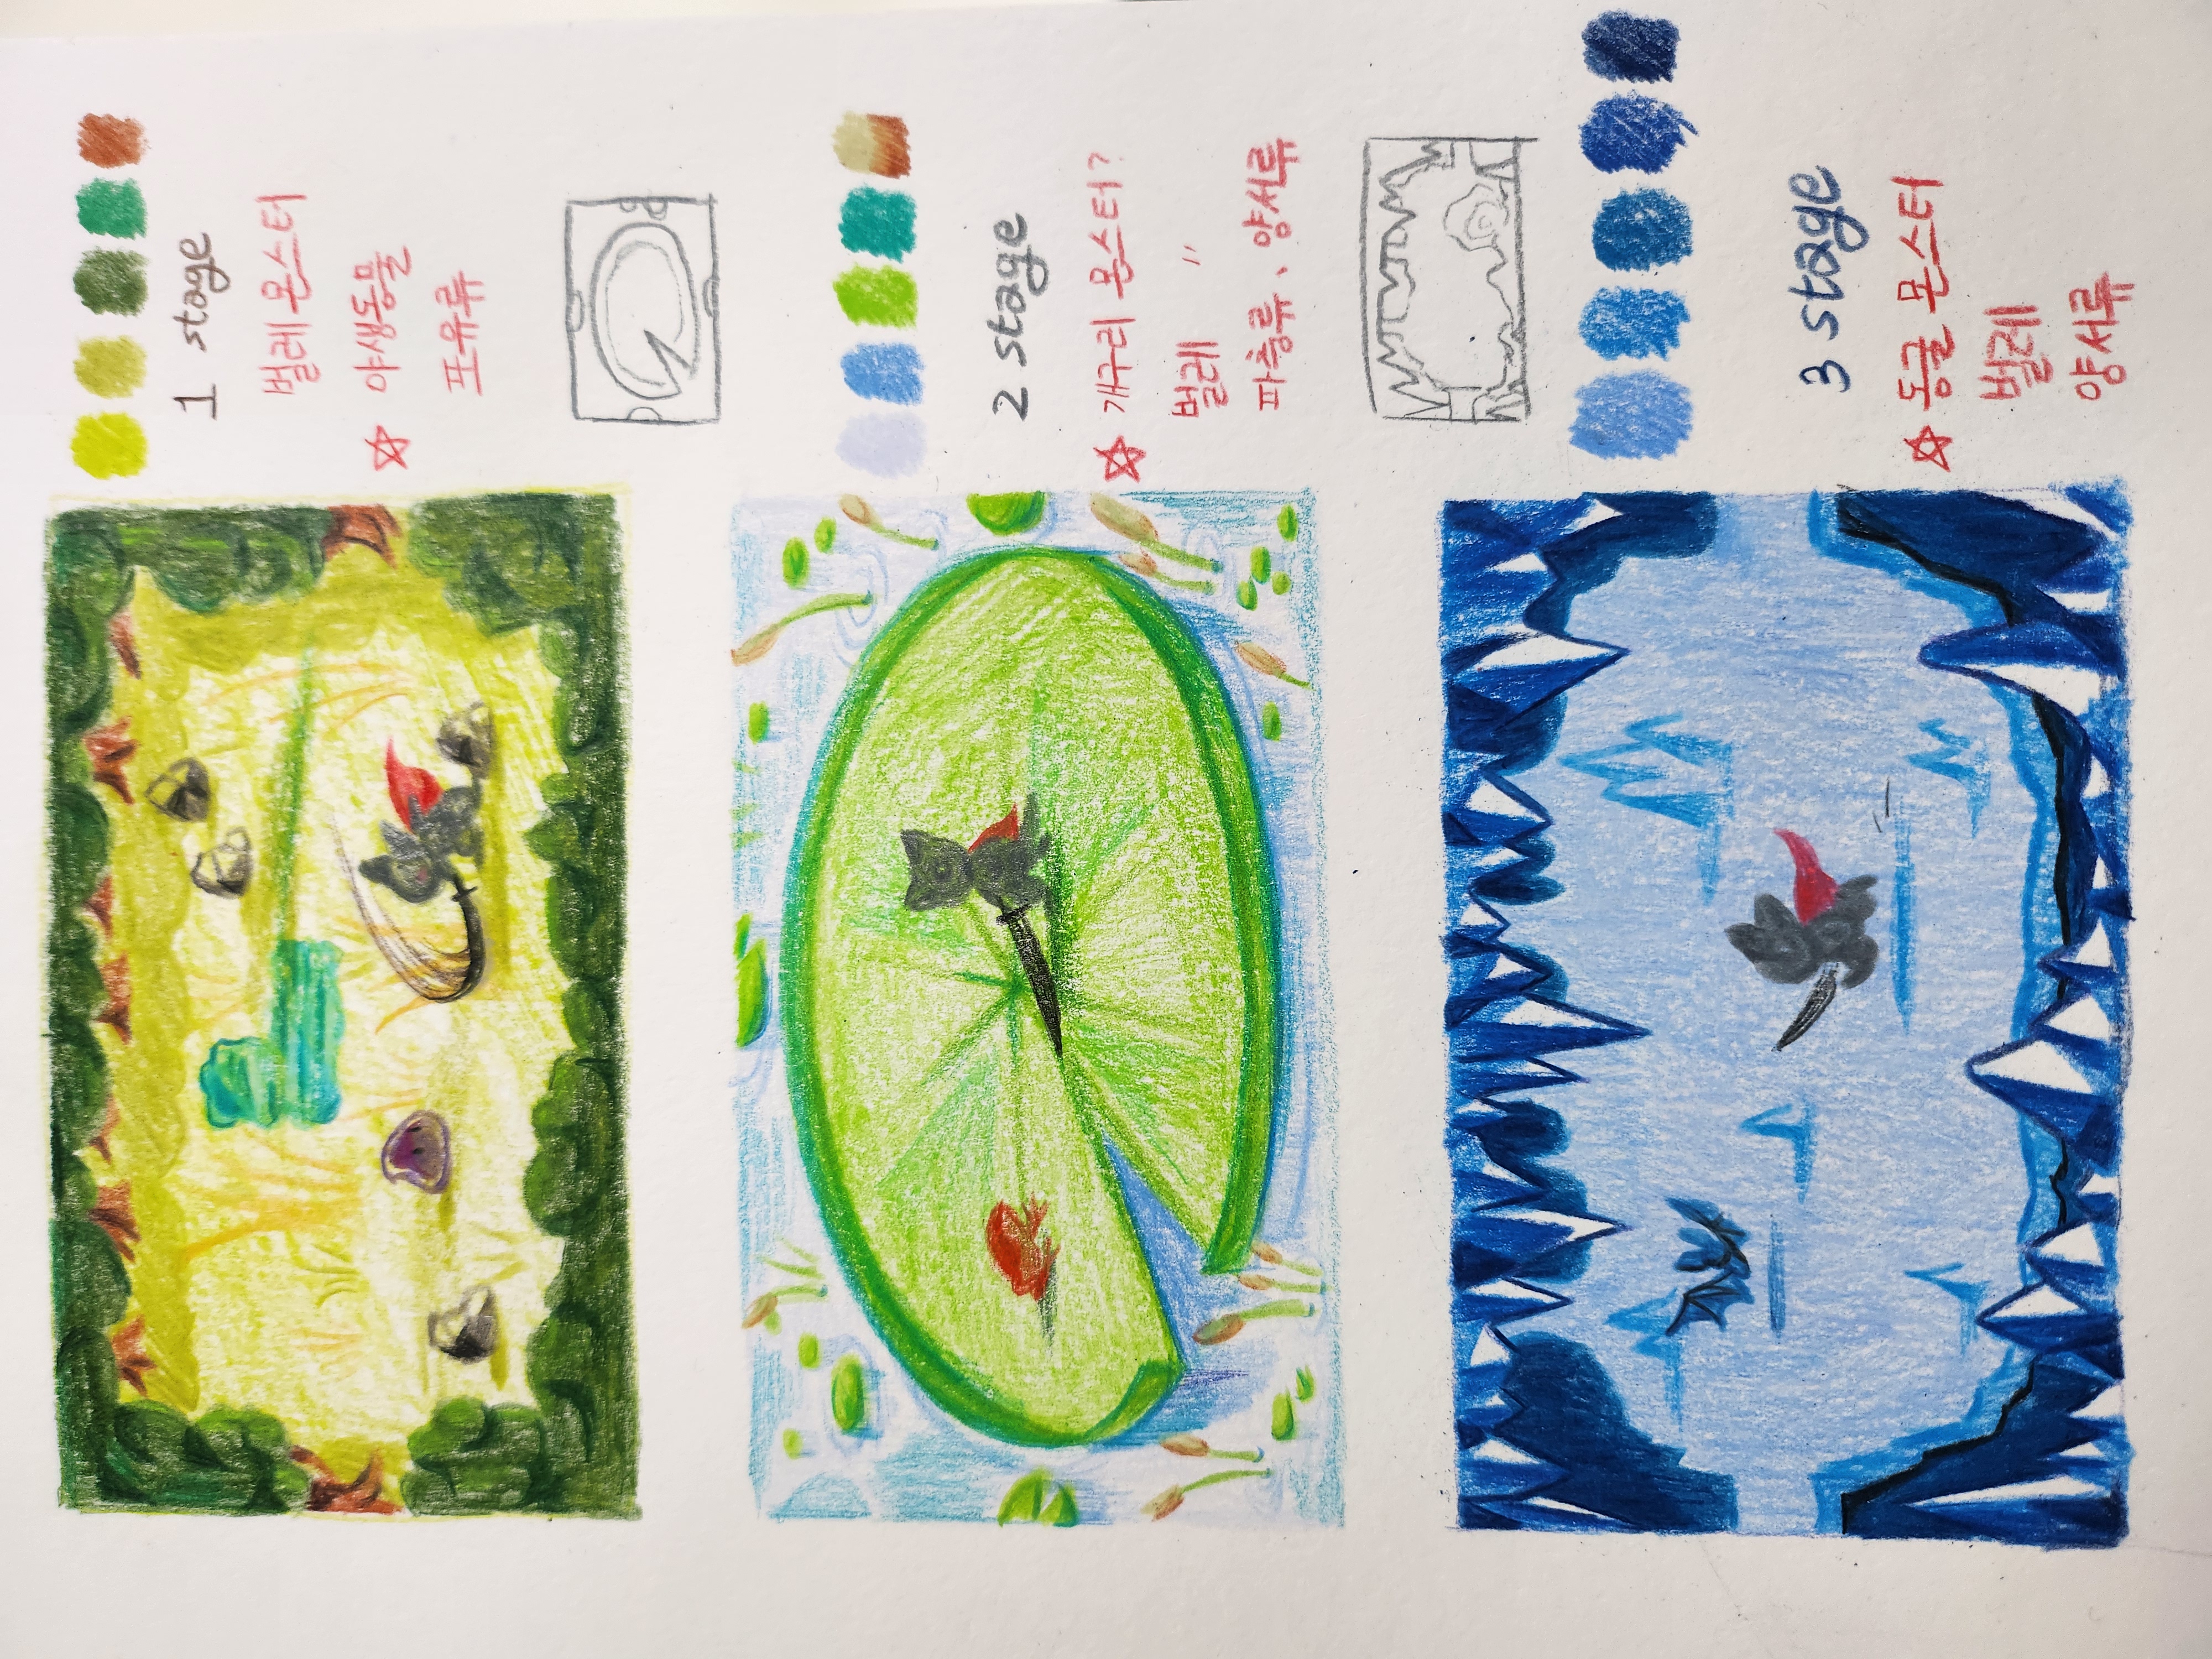 1 stage
벌레 몬스터
☆ 야생동물
포유류
2 stage
☆ 개구리 몬스터?
벌레 〃
파충류, 양서류
3 stage
☆ 동굴 몬스터
벌레
양서류